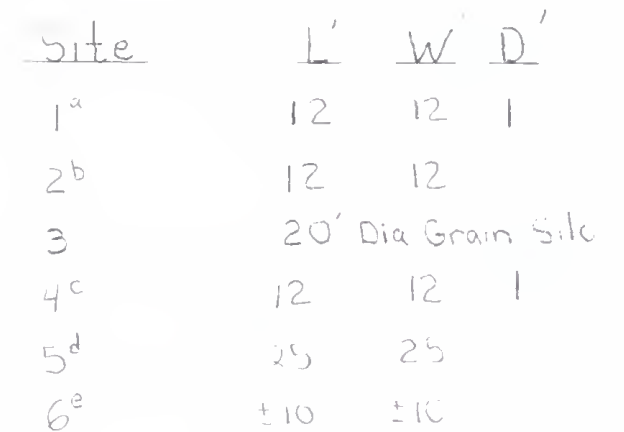 Site L' W' D'
1ᵃ 12 12 1
2ᵇ 12 12
3 20' Dia Grain Silo
4ᶜ 12 12 1
5ᵈ 25 25
6ᵉ ±10 ±10